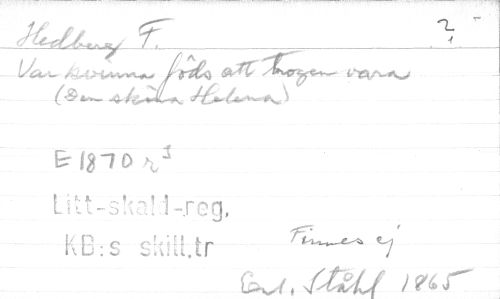 Hedberg F. 2
Var kvinna föds att trogen vara
(Den sköna Helena)
E 1870 r 3
Litt-skald-reg.
KB:s skill.tr
Finnes ej
Enl. Ståhl 1865